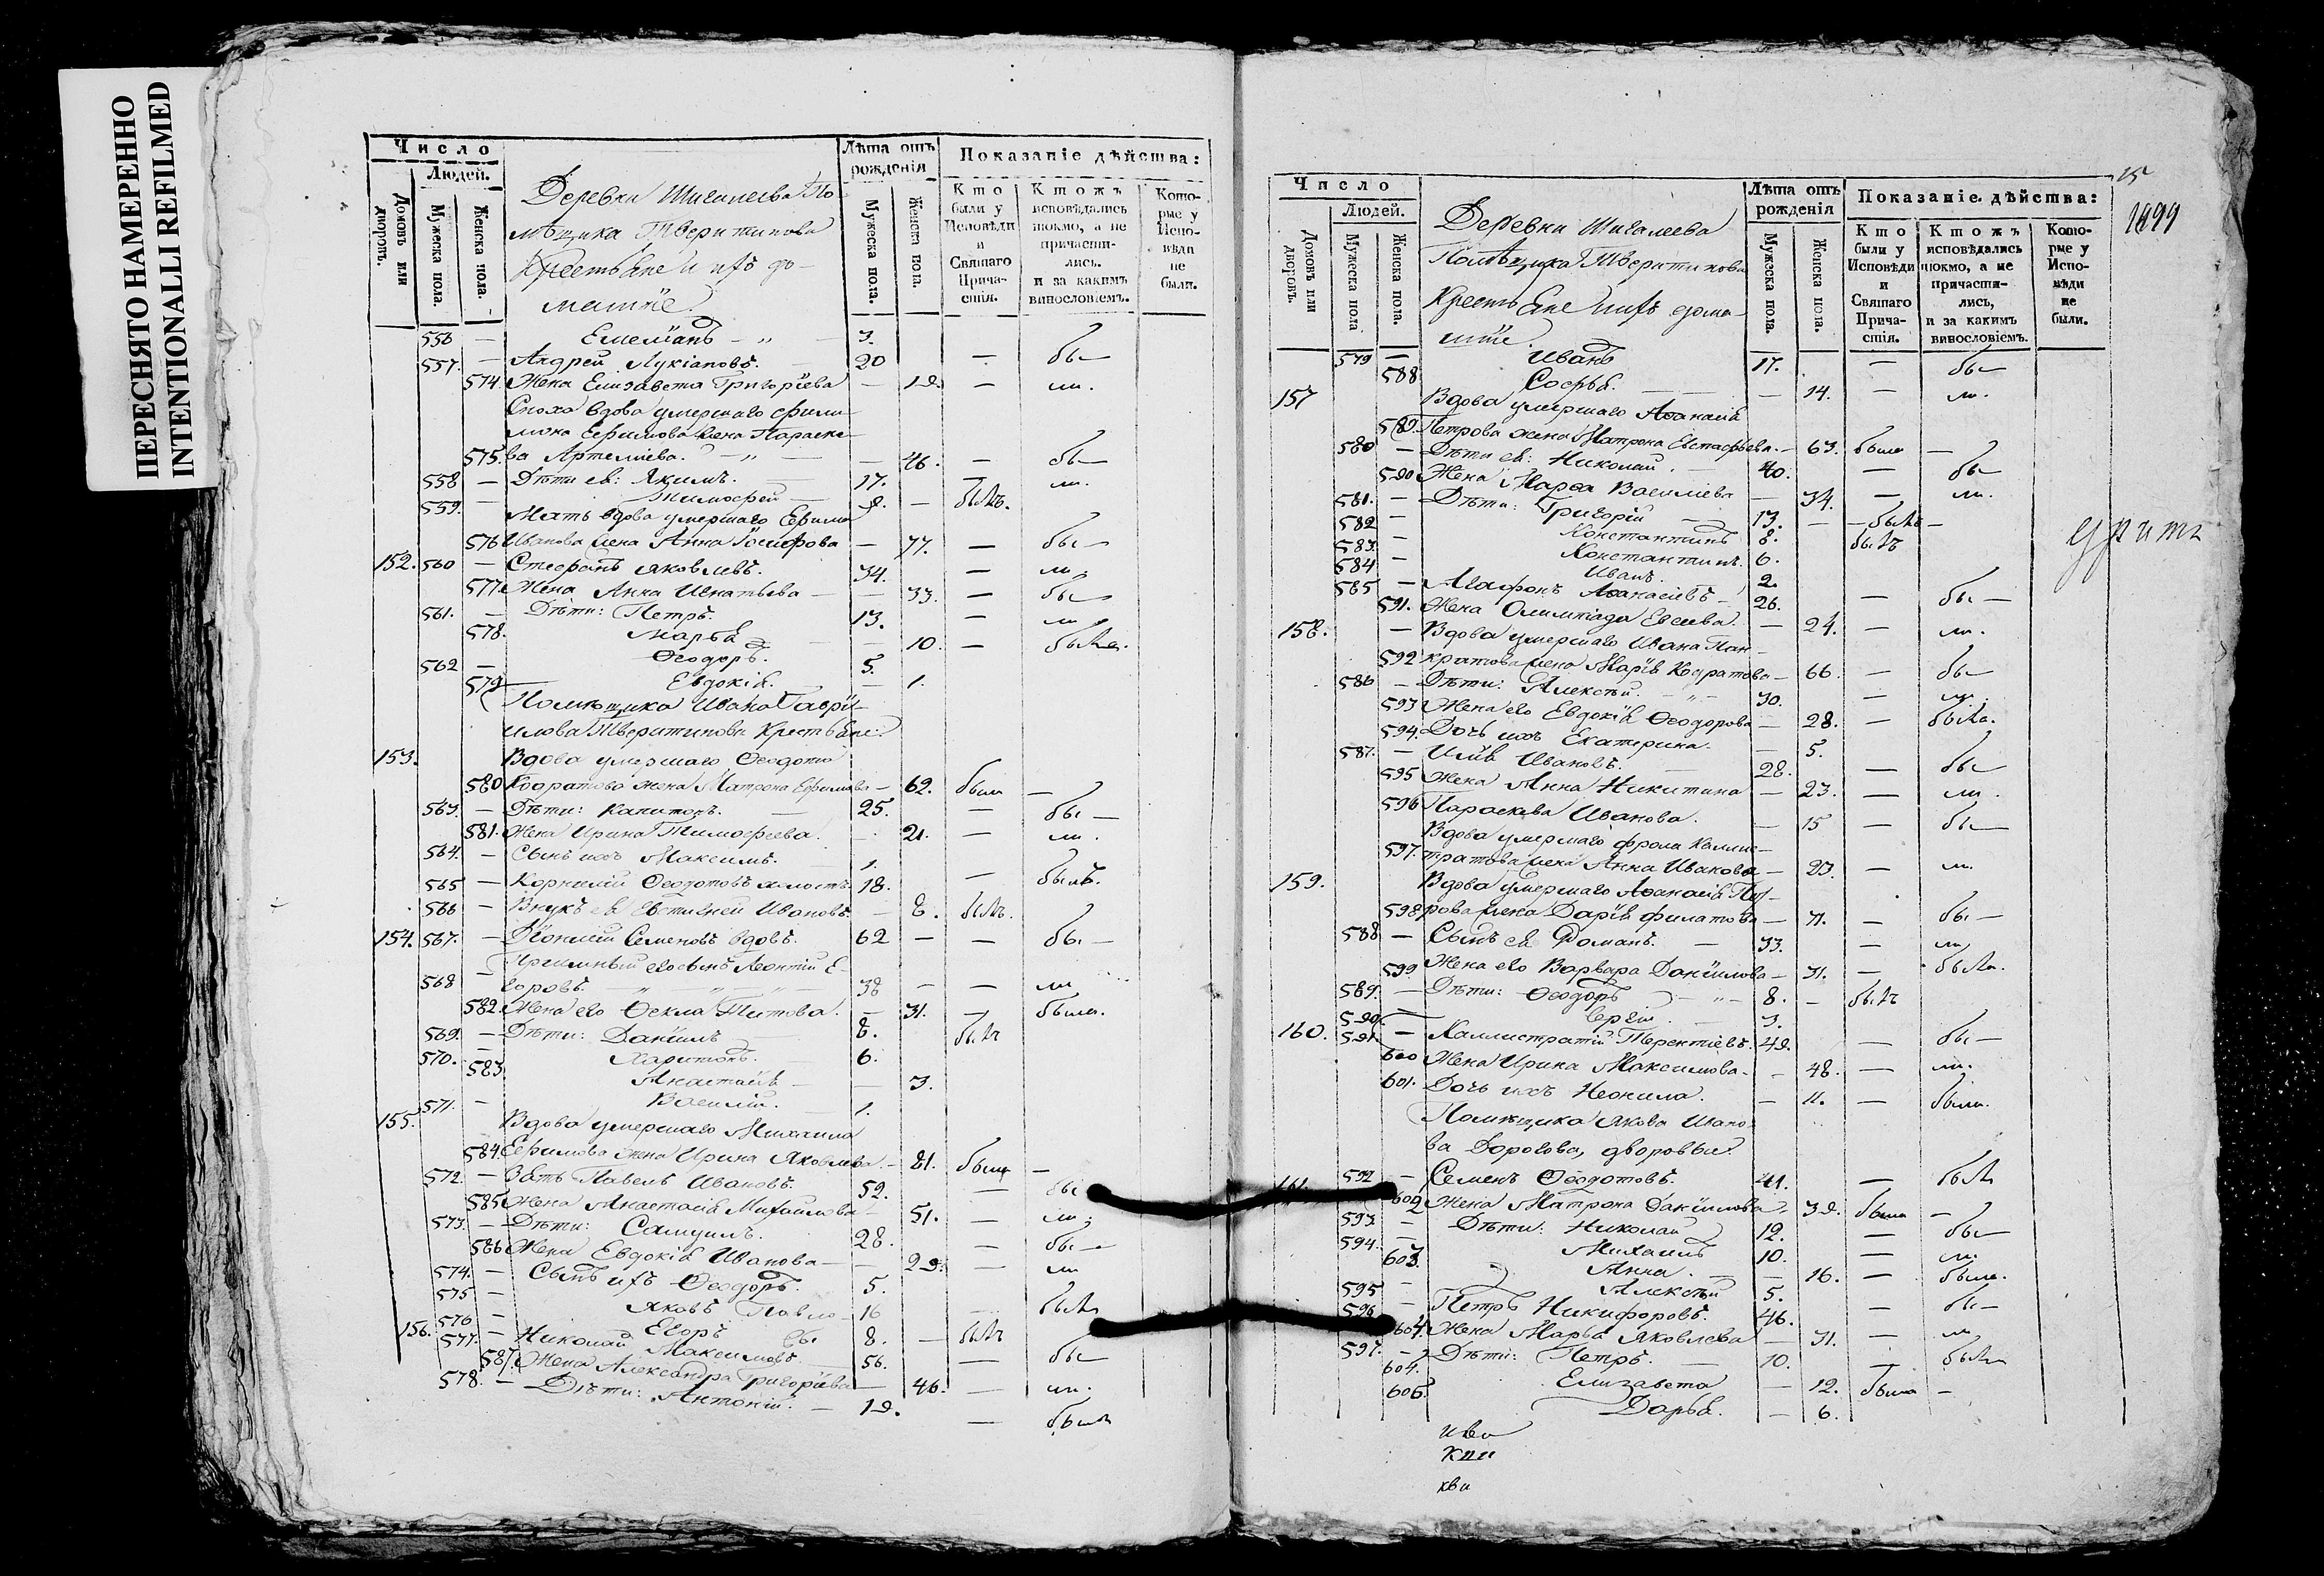 ПЕРЕСНЯТО НАМЕРЕННО
INTENTIONALLI REFILMED
Число
Людей.
Домовъ или дворовъ.
Мужеска пола.
Женска пола.
Деревни Шигалеева По-
мѣщика Тверитинова
Крестьяне и ихъ до-
машніе.
Лѣта отъ рожденія
Мужеска пола.
Женска пола.
Показаніе дѣйства:
Кто были у Исповѣди и Святаго Причастія.
Ктожъ исповѣдались токмо, а не причастились. и за какимъ винословіемъ.
Которые у Исповѣди не были.
556 — Емеліанъ — 3.
557. — Андрей Лукіановъ. 20 — бы—
574. Жена Елизавета Григоріева — 19. — ли.
Сноха вдова умершаго Фили-
мона Ефимова жена Параске-
575. ва Артеміева. — 46. — бы—
558 — Дѣти ея: Якимъ. 17. — ли.
559. Тимофей — 9. — былъ.
Мать вдова умершаго Ефима
576 Иванова жена Анна Іосифова — 77. — бы—
152. 560 — Стефанъ Яковлевъ. 34. — ли.
577. Жена Анна Игнатьева — 33. — бы—
561. — Дѣти: Петръ. 13. — ли
578. Марья — 10. — были.
562 — Ѳеодоръ. 5.
579 Евдокія. — 1.
Помѣщика Ивана Гаврі-
илова Тверитинова Крестьяне:
153. Вдова умершаго Ѳеодота
580 Кодратова жена Матрона Ефимова — 62. была —
563. — Дѣти: Капитонъ. 25. — бы—
581. Жена Ирина Тимофеева. — 21. — ли.
564. — Сынъ ихъ Максимъ. 1.
565 — Корнилій Ѳеодотовъ холостъ. 18. — былъ.
566 — Внукъ ея Евстигней Ивановъ. — 8. былъ.
154. 567. — Діонисій Семеновъ вдовъ. 62 — — бы—
Пріемный его сынъ Леонтій Е-
568 — горовъ. 38 — — ли
582. Жена его Ѳекла Титова. — 31. — были.
569. — Дѣти: Даніилъ 8. былъ
570. — Харитонъ. 6.
583 Анастасія — — 3.
571. — Василій. 1.
155. Вдова умершаго Михаила
584. Ефимова жена Ирина Яковлева. — 81. была —
572. — Зять Павелъ Ивановъ. 52. — бы
585 Жена Анастасія Михайлова — 51. — ли.
573. — Дѣти: Самуилъ. 28. — бы—
586 Жена Евдокія Иванова — — 29. — ли
574. — Сынъ ихъ Ѳеодоръ. 5.
575 — Яковъ Павло 16 — былъ
576 — Егоръ вы 8. — былъ
156. 577. — Николай Максимовъ. 56. — бы—
587. Жена Александра Григоріева — 46. — ли.
578. — Дѣти: Антоній. — 19. — былъ
Число
Людей.
Домовъ или дворовъ.
Мужеска пола
Женска пола.
Деревни Шигалеева
Помѣщика Тверитинова
Крестьяне и ихъ дома-
шніе.
Лѣта отъ рожденія
Мужеска пола.
Женска пола.
Показаніе дѣйства:
Кто были у Исповѣди и Святаго Причастія.
Ктожъ исповѣдались токмо, а не причастились, и за какимъ винословіемъ.
Которые у Исповѣди не были.
579 — Иванъ 17. — бы—
588 Софья. — — 14. — ли.
157 Вдова умершаго Аѳанасія
589. Петрова жена Матрона Евстафьева. — 63. была —
580 — Дѣти ея: Николай. — 40. — бы
590 Жена Марѳа Василіева — 34. — ли.
581. — Дѣти: Григорій — 13. — — былъ —
582 — Константинъ 8. былъ
583. — Константинъ. 6.
584 — Иванъ. 2.
585 — Агафонъ Аѳанасіевъ — 26. — бы—
591. Жена Олимпіада Евсеева. — 24. — ли.
158. — Вдова умершаго Ивана Пан-
592 кратова жена Марія Кодратова — 66. — бы—
586 — Дѣти: Алексѣй. 30. — ли.
593 Жена его Евдокія Ѳеодорова — 28. — была.
594. Дочь ихъ Екатерина. — 5.
587. — Илія Ивановъ. 28. — бы
595 Жена Анна Никитина — 23. — ли.
596 Параскева Иванова. — 15 — бы—
Вдова умершаго Фрола Калис-
597. тратова жена Анна Иванова — 23. — ли.
159. Вдова умершаго Аѳанасія Пет-
598 рова жена Дарія Филатова — 71. — бы—
588 — Сынъ ея Романъ. — 33. — ли
599 Жена его Варвара Даніилова — 31. — были.
589. — Дѣти: Ѳеодоръ 8. — былъ
590. — Сергій. — 3.
160. 591. — Каллистратій Терентіевъ. 49. — бы—
600 Жена Ирина Максимова. — 48. — ли.
601. Дочь ихъ Неонила. — 11. — были.
Помѣщика Якова Ивано-
ва Дорогова, дворовые:
161. 592 — Семенъ Ѳеодотовъ. 41. — былъ
602 Жена Матрона Даніилова. 39. была —
593 — Дѣти: Николай 12. — бы—
594. — Михаилъ 10. — ли.
603. Анна. — — 16. — были.
595 — Алексѣй 5.
596 — Петръ Никифоровъ. 46. — бы—
604. Жена Марья Яковлева — 31. — ли
597. — Дѣти: Петръ. — 10. — былъ
604. Елизавета — 12. была —
606. Дарья. — 6.